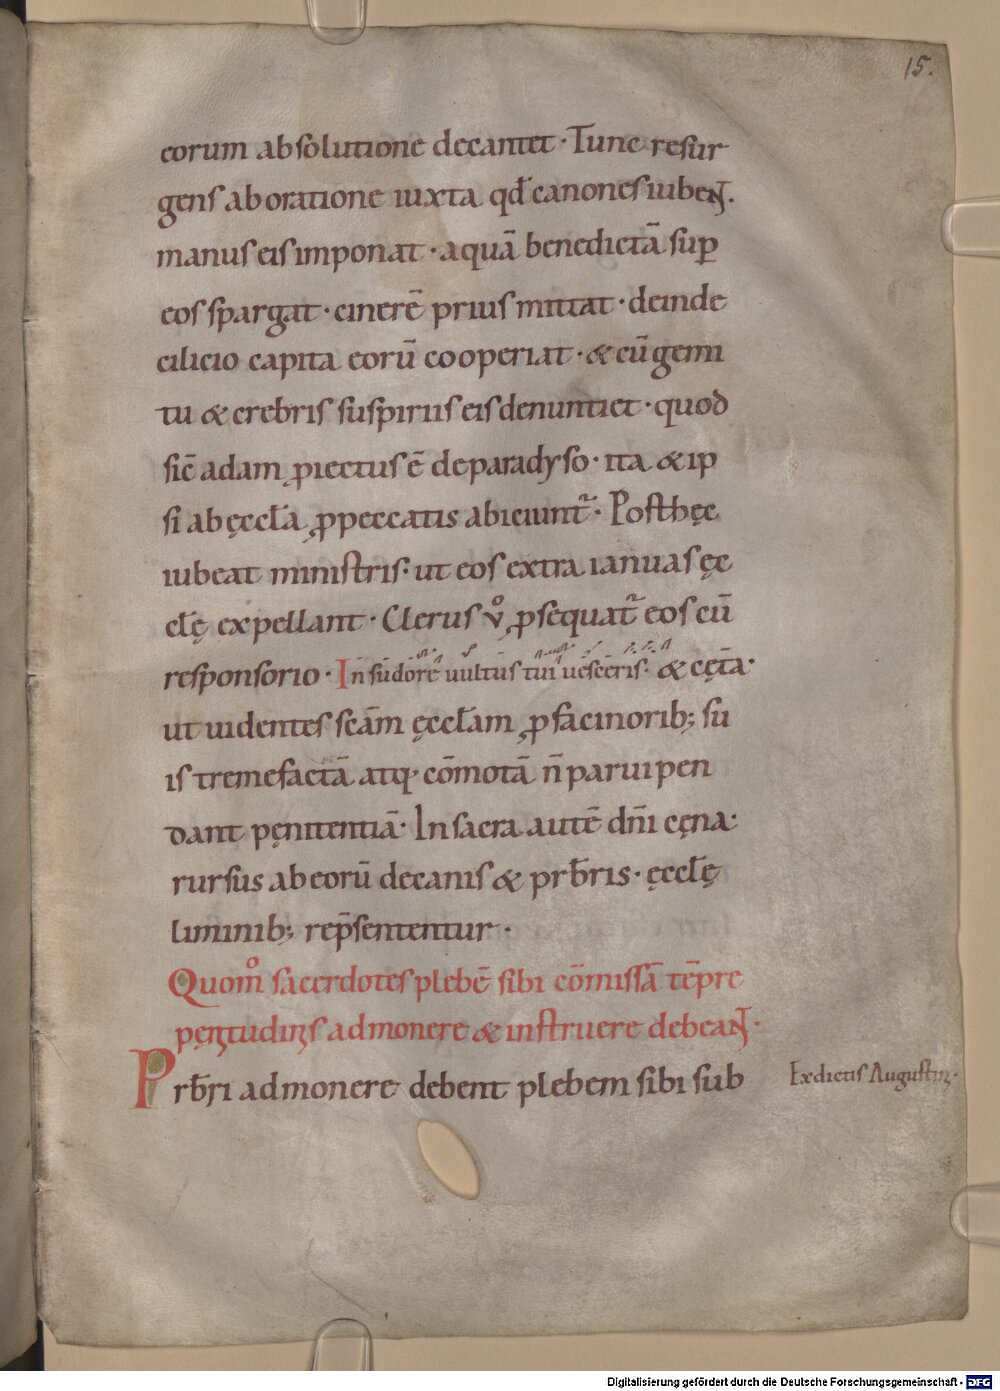 15.
eorum absolutione decantet · Tunc resur
gens ab oratione iuxta qđ canones iubeɴτ.
manus eis imponat · aquā benedictā sup̄
eos spargat · cinerē prius mittat · deinde
cilicio capita eorū cooperiat · & cū gemi
tu & crebris suspiriis eis denuntiet · quod
sic̄ adam ꝓiectus ē de paradyso · ita & ip
si ab ęccl̄a ꝓ peccatis abiciunt᷑ · Post hęc
iubeat ministris · ut eos extra ianuas ęc
cl̄ę expellant · Clerus v° ꝓsequat᷑ eos cū
responsorio · In sudore uultus tui uesceris · & cęt̄a ·
ut uidentes sc̄am ęccl̄am ꝓ facinorib; su
is tremefactā atq· cōmotā n̄ paruipen
dant pęnitentiā · In sacra autē dn̄i cęna ·
rursus ab eorū decanis & prb̄ris · ęccl̄ę
liminib; rep̄sententur ·
Quom° sacerdotes plebē sibi cōmissā tēpre
pęnitudinis admonere & instruere debeaɴτ ·
Prb̄ri admonere debent plebem sibi sub
Ex dictis Augustini ·
Digitalisierung gefördert durch die Deutsche Forschungsgemeinschaft - DFG